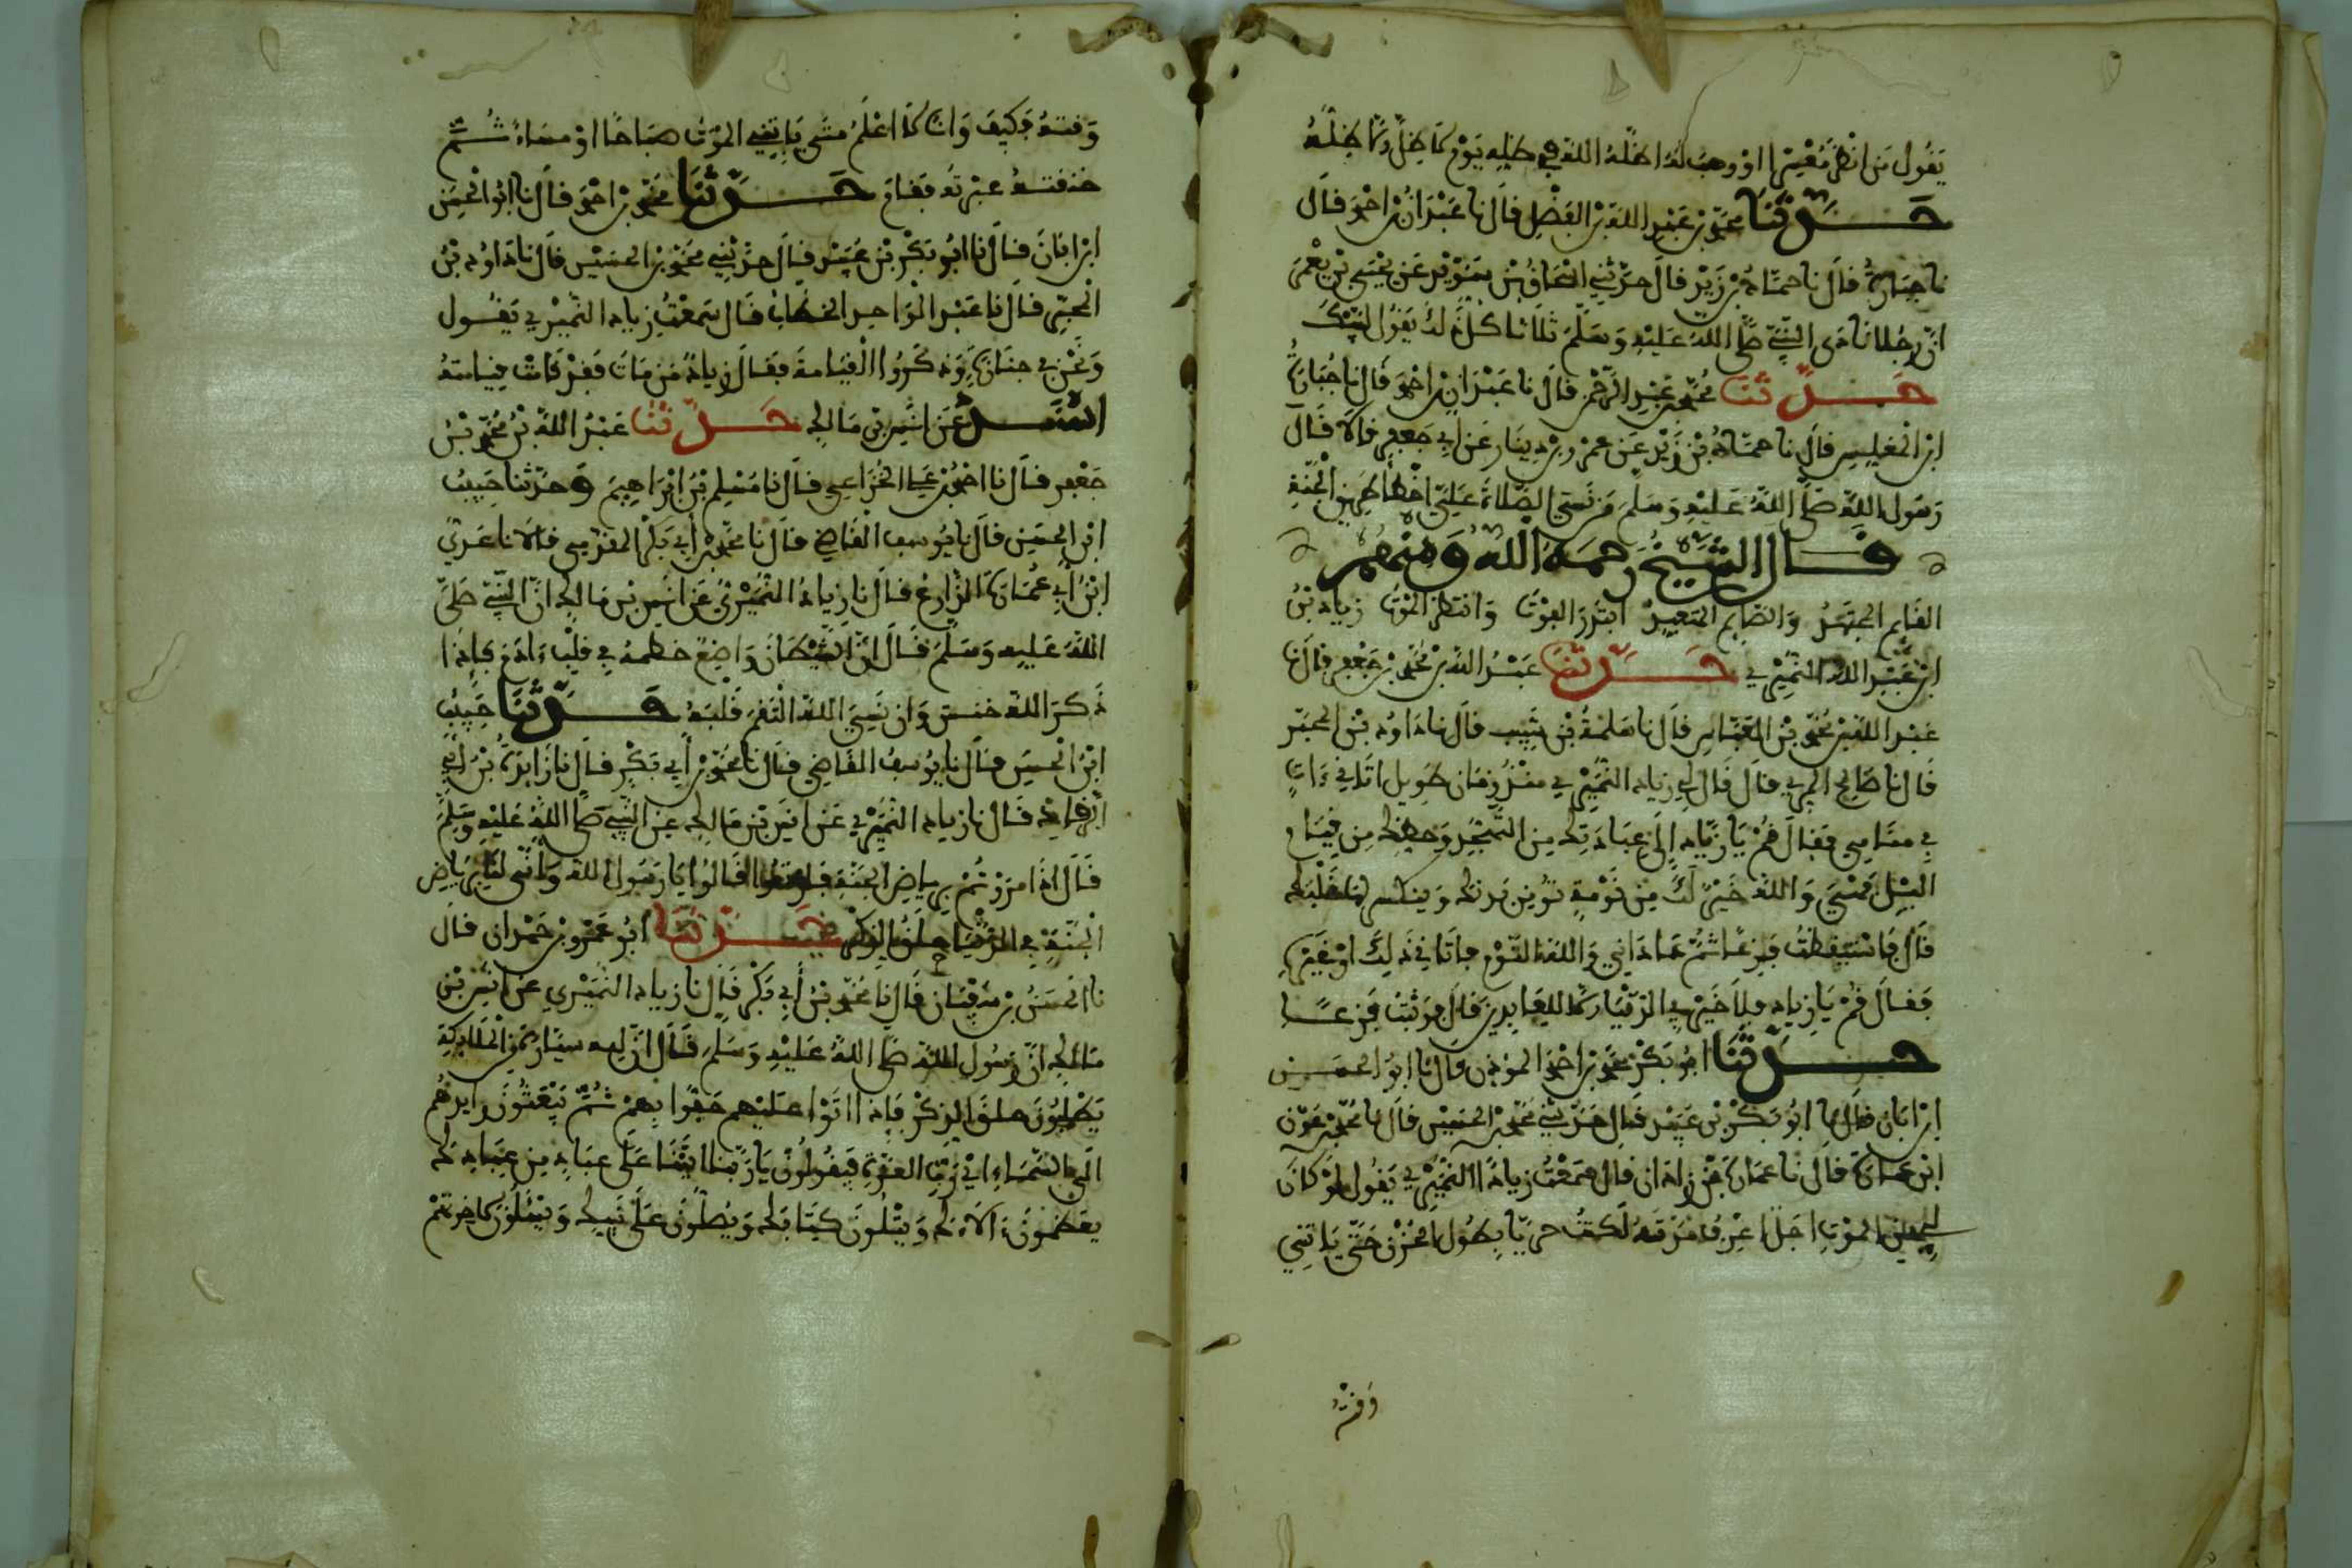 يقول من انظر معسرا او وهب له اظله الله في ظله يوم لا ظل الا ظله
حدثنا محمد بن عبد الله بن الفضل قال نا عبدان بن احمد قال
نا جبارة قال نا حماد بن زيد قال حدثني اسحاق بن سويد عن يحيى بن يعمر
ان رجلا نادى النبي صلى الله عليه وسلم ثلاثا كل ذلك يقول لبيك
حدثنا محمد بن عبد الرحمن قال نا عبدان بن احمد قال نا جبارة
ابن المغلس قال نا حماد بن زيد عن عمرو بن دينار عن ابي جعفر قالا قال
رسول الله صلى الله عليه وسلم من نسي الصلاة علي اخطا طريق الجنة
قال الشيخ رحمه الله ومنهم
القايم المجتهد والصايم المتعبد ابتدر الفوت وانتظر الموت زياد بن
ابن عبد الله النميري حدثنا عبد الله بن محمد بن جعفر قال نا
عبد الله بن محمد بن العباس قال نا سلمة بن شبيب قال نا داود بن المحبر
قال نا صالح المري قال قال لي زياد النميري منذ زمان طويل اتاني ءات
في منامي فقال قم يا زياد الى عبادتك من التهجد وحظك من قيام
اليل فهي والله خير لك من نومة توهن بدنك وينكسر لها قلبك
قال فاستيقظت فزعا ثم عاداني والله النوم فاتاني ذلك او غيره
فقال قم يا زياد فلا خير في الدنيا الا للعابدين قال فوثبت فزعا
حدثنا ابو بكر محمد بن احمد المؤذن قال نا ابو الحسن
ابن ابان قال نا ابو بكر بن عبيد قال حدثني محمد بن الحسين قال نا محمد بن عون
ابن عمارة قال نا عمارة بن زاذان قال سمعت زيادا النميري يقول لو كان
لي من الموت اجل اعرف مدته لكنت حريا بطول الحزن حتى ياتيني
وقته
وقته فكيف وانا لا اعلم متى ياتيني الموت صباحا او مساء ثم
خنقته عبرته فقام حدثنا محمد بن احمد قال نا ابو الحسن
ابن ابان قال نا ابو بكر بن عبيد قال حدثني محمد بن الحسين قال نا داود بن
المحبر قال نا عبد الواحد الخطاب قال سمعت زياد النميري يقول
ونحن في جنازة وذكروا القيامة فقال زياد من مات فقد قامت قيامته
اسند عن انس بن مالك حدثنا عبد الله بن محمد بن
جعفر قال نا احمد بن علي الخزاعي قال نا مسلم بن ابراهيم وحدثنا حبيب
ابن الحسن قال نا يوسف القاضي قال نا محمد بن ابي بكر المقدمي قالا نا عدي
ابن ابي عمارة الزارع قال نا زياد النميري عن انس بن مالك ان النبي صلى
الله عليه وسلم قال ان الشيطان واضع خطمه في قلب ءادم فاذا
ذكر الله خنس وان نسي الله التقم قلبه حدثنا حبيب
ابن الحسن قال نا يوسف القاضي قال نا محمد بن ابي بكر قال نا زايدة بن ابي
الرقاد قال نا زياد النميري عن انس بن مالك عن النبي صلى الله عليه وسلم
قال اذا مررتم برياض الجنة فارتعوا قالوا يا رسول الله وانى لنا برياض
الجنة في الدنيا حلق الذكر حدثنا ابو عمرو بن حمدان قال
نا الحسن بن سفيان قال نا محمد بن ابي بكر قال نا زياد النميري عن انس بن
مالك ان رسول الله صلى الله عليه وسلم قال ان لله سيارة من الملايكة
يطلبون حلق الذكر فاذا اتوا عليهم حفوا بهم ثم يبعثون رايدهم
الى السماء الى رب العزة فيقولون يا ربنا اتينا على عباد من عبادك
يعظمون ءالاءك ويتلون كتابك ويصلون على نبيك ويسئلون لاخرتهم